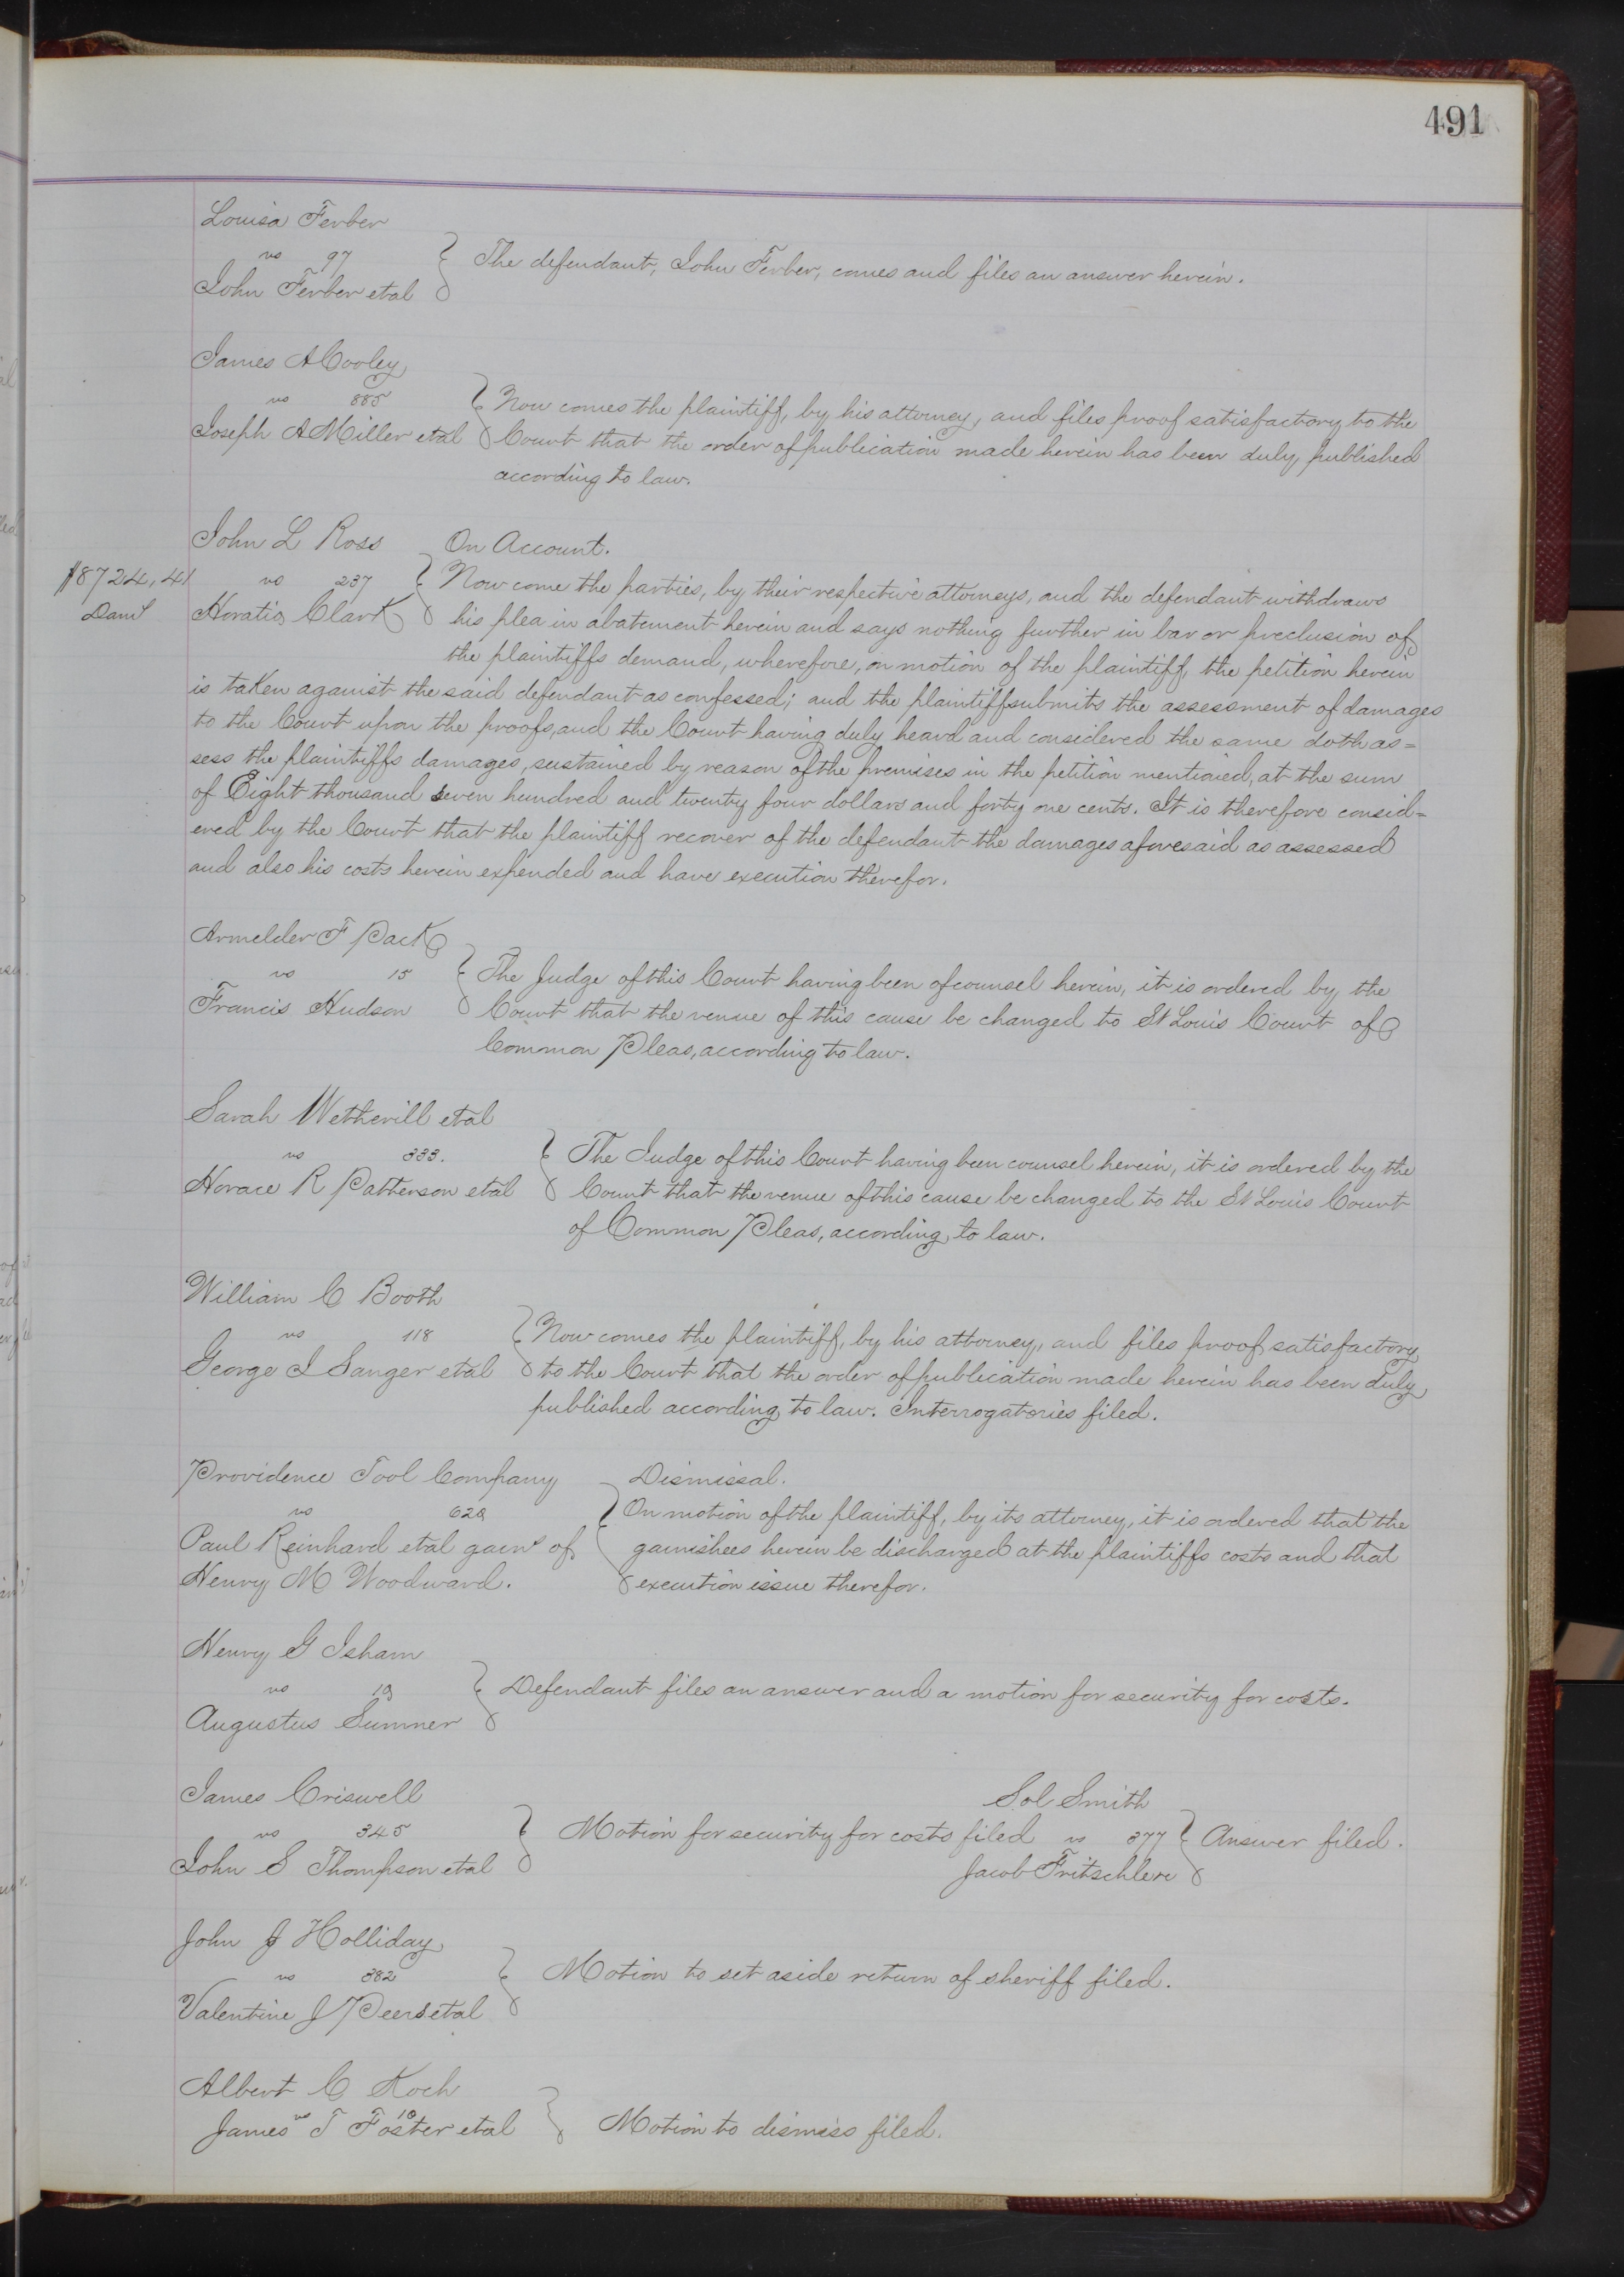 491
Louisa Ferber
vs 97
John Ferber etal
The defendant, John Ferber, comes and files an answer herein.
James A Cooley
vs 885
Joseph A Miller etal
Now comes the plaintiff, by his attorney, and files proof satisfactory to the
Court that the order of publication made herein has been duly published
according to law.
John L Ross
vs 237
Horatio Clark
$8724,41
Dam
On Account.
Now come the parties, by their respective attorneys, and the defendant withdraws
his plea in abatement herein and says nothing further in bar or preclusion of
the plaintiffs demand, wherefore, on motion of the plaintiff, the petition herein
is taken against the said defendant as confessed; and the plaintiff submits the assessment of damages
to the Court upon the proofs, and the Court having duly heard and considered the same doth as=
sess the plaintiffs damages, sustained by reason of the premises in the petition mentioned, at the sum
of Eight thousand seven hundred and twenty four dollars and forty one cents. It is therefore consid=
ered by the Court that the plaintiff recover of the defendant the damages aforesaid as assessed
and also his costs herein expended and have execution therefor.
Armelder F Pack
vs 15
Francis Hudson
The Judge of this Court having been of counsel herein, it is ordered by the
Court that the venue of this cause be changed to St Louis Court of
Common Pleas, according to law.
Sarah Wetherill etal
vs 333.
Horace R Patterson etal
The Judge of this Court having been counsel herein, it is ordered by the
Court that the venue of this cause be changed to the St Louis Court
of Common Pleas, according to law.
William C Booth
vs 118
George I Sanger etal
Now comes the plaintiff, by his attorney, and files proof satisfactory
to the Court that the order of publication made herein has been duly
published according to law. Interrogatories filed.
Providence Tool Company
vs 628
Paul Reinhard etal garns of
Henry M Woodward.
Dismissal.
On motion of the plaintiff, by its attorney, it is ordered that the
garnishees herein be discharged at the plaintiffs costs and that
execution issue therefor.
Henry G Isham
vs 19
Augustus Sumner
Defendant files an answer and a motion for security for costs.
James Criswell
vs 345
John S Thompson etal
Motion for security for costs filed
Sol Smith
vs 377
Jacob Fritschlere
Answer filed.
John J Holliday
vs 382
Valentine J Peers etal
Motion to set aside return of sheriff filed.
Albert C Koch
vs 10
James T Foster etal
Motion to dismiss filed.